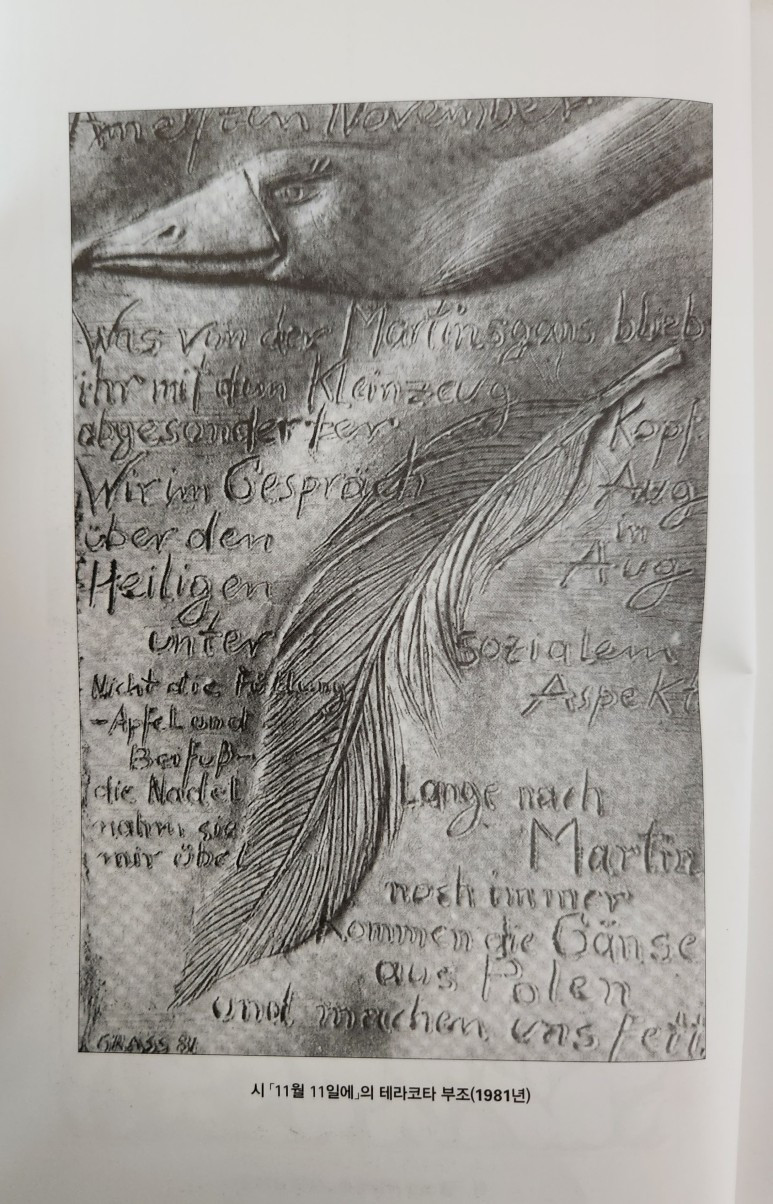 Am elften November
Was von der Martinsgans blieb
ihr mit dem Kleinzeug
abgesonderter
Kopf
Aug
in
Aug
Wir im Gespräch
über den
Heiligen
unter
sozialem
Aspekt
Nicht die Füllung
-Äpfel und
Beifuß-
die Nadel
nahm sie
mir übel
Lange nach
Martin
noch immer
kommen die Gänse
aus Polen
und machen uns fett.
GRASS 81
시 「11월 11일에」의 테라코타 부조(1981년)